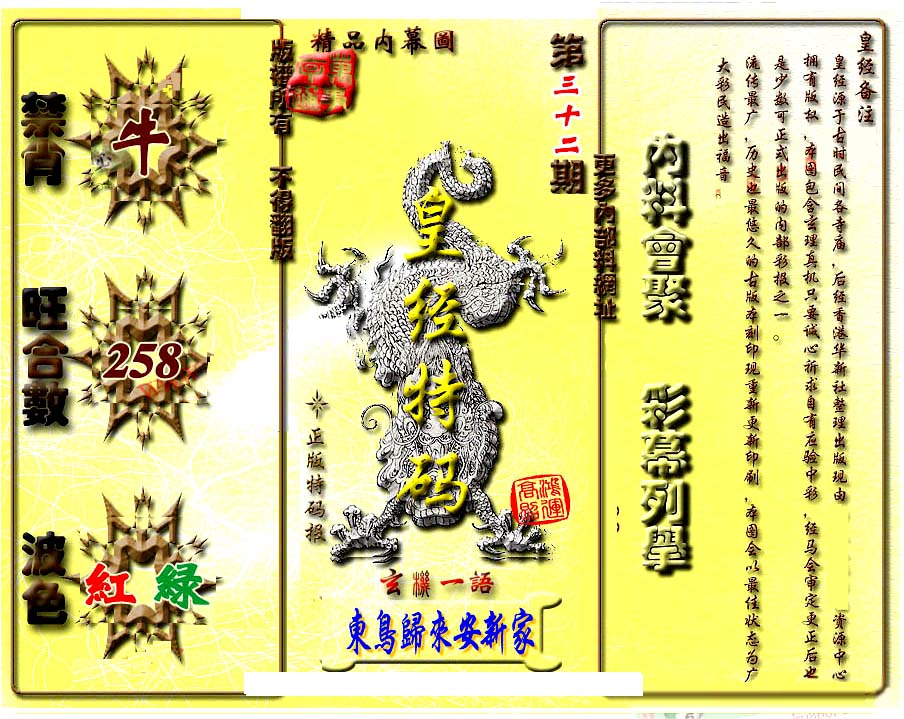 精品内幕圖
第三十二期
版權所有 不得翻版
更多内部料網址
禁肖
牛
旺合數
258
波色
紅 綠
皇经特码
正版特码报
鴻運高照
玄機一語
東鳥歸來安新家
内料會聚 彩幕列舉
皇经备注
皇经源于古时民间各寺庙，后经香港华新社整理出版现由 资源中心
拥有版权，本图包含玄理真机只要诚心祈求自有应验中彩，经马会审定更正后也
是少数可正式出版的内部彩报之一。
流传最广，历史也最悠久的古版本刻印现重新更新印刷，本图会以最佳状态为广
大彩民造出福音